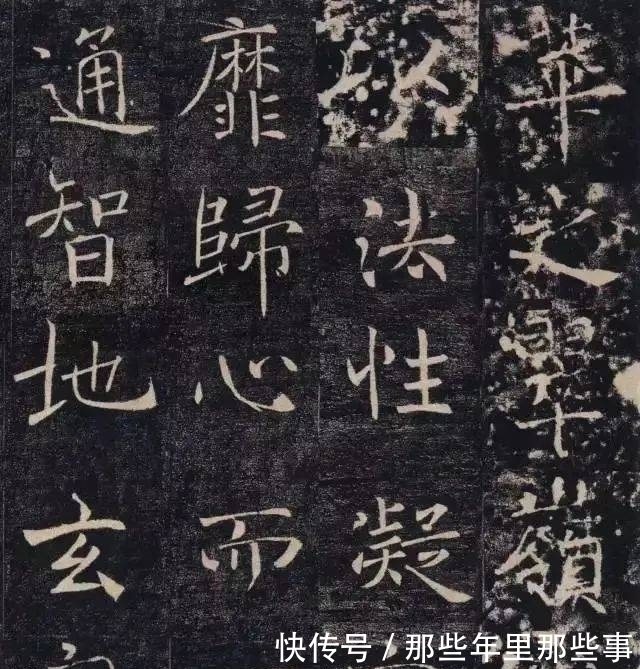 華文嶺
法性凝
靡歸心而
通智地玄
快传号 / 那些年里那些事